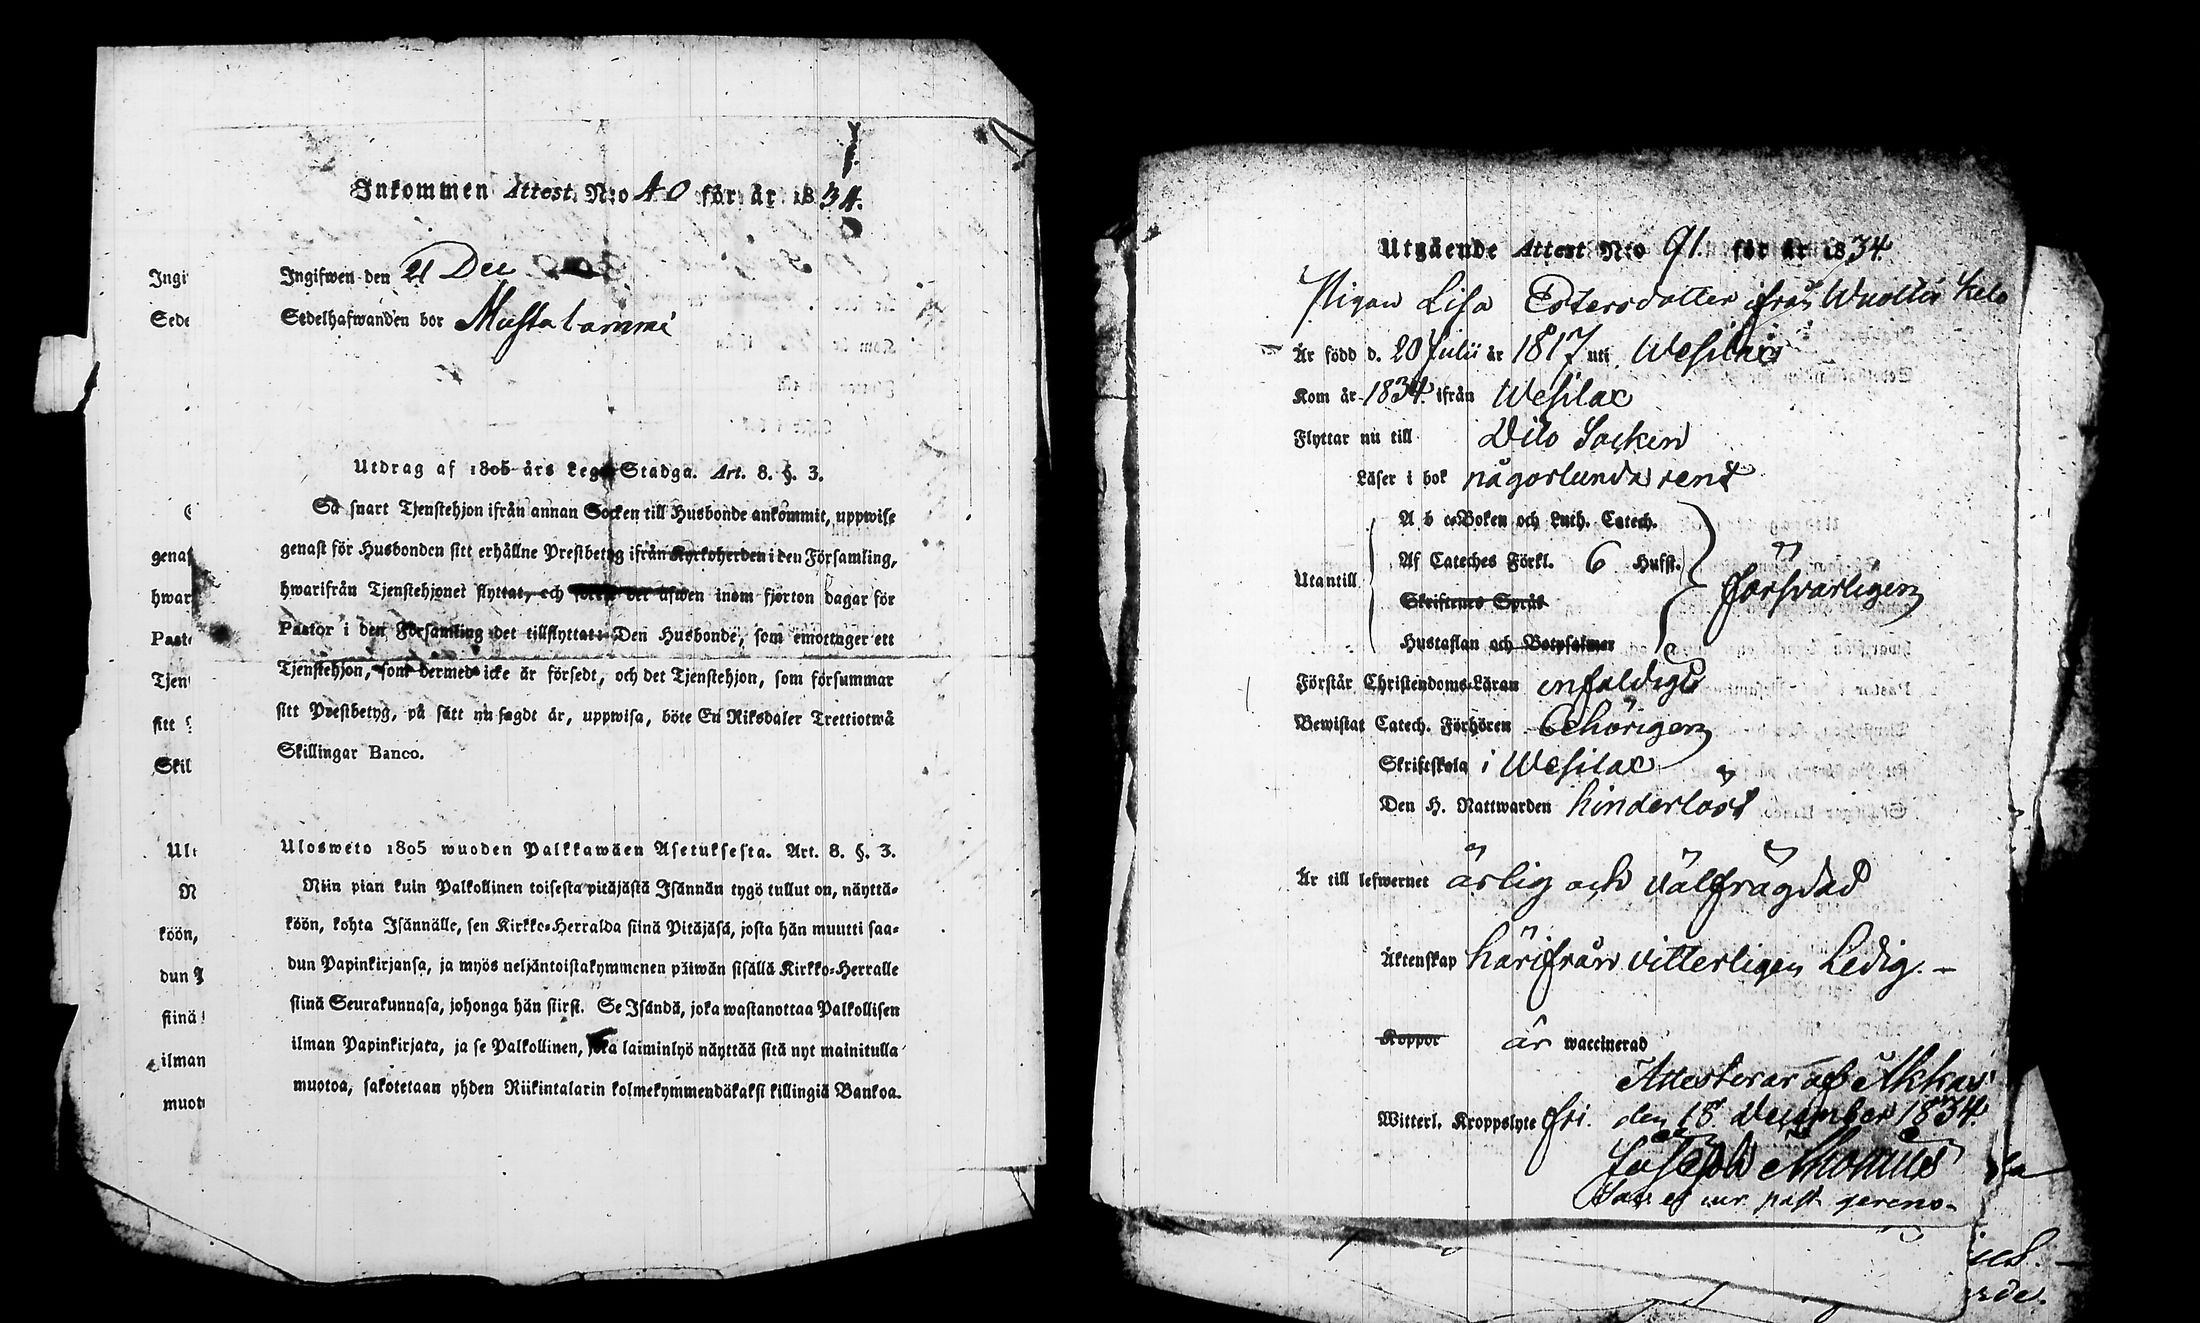 Inkommen Attest N:o 40 för år 1834.
Ingifwen den 21 Dec
Sedelhafwanden bor Mustalammi
Utdrag af 1805 års Lego-Stadga. Art. 8. §. 3.
Så snart Tjenstehjon ifrån annan Socken till Husbonde ankommit, uppwise
genast för Husbonden sitt erhållne Prestbetyg ifrån Kyrkoherden i den Församling,
hwarifrån Tjenstehjonet flyttat, och det äfwen inom fjorton dagar för
Pastor i den Församling det tillflyttat: Den Husbonde, som emottager ett
Tjenstehjon, som dermed icke är försedt, och det Tjenstehjon, som försummar
sitt Prestbetyg, på sätt nu sagdt är, uppwisa, böte En Riksdaler Trettiotwå
Skillingar Banco.
Ulosweto 1805 wuoden Palkkawäen Asetuksesta. Art. 8. §. 3.
Niin pian kuin Palkollinen toisesta pitäjästä Isännän tygö tullut on, näyttä-
köön, kohta Isännälle, sen Kirkko-Herralda siinä Pitäjäsä, josta hän muutti saa-
dun Papinkirjansa, ja myös neljäntoistakymmenen päiwän sisällä Kirkko-Herralle
siinä Seurakunnasa, johonga hän siirsi. Se Isändä, joka wastanottaa Palkollisen
ilman Papinkirjata, ja se Palkollinen, joka laiminlyö näyttää sitä nyt mainitulla
muotoa, sakotetaan yhden Riikintalarin kolmekymmendäkaksi killingiä Bankoa.
Ingi
Sede
genas
hwar
Past
Tjen
sitt
Skil
Ul
N
köön,
dun
siinä
ilman
muot
Utgående Attest N:o 91. för år 1834.
Pigan Lisa Estersdotter ifrån
Är född d. 20 Julii år 1817 uti Wesilax
Kom år 1834 ifrån Wesilax
Flyttar nu till Wilo Socken
Läser i bok någorlunda rent
A b c-Boken och Luth. Catech.
Utantill Af Cateches Förkl. 6 Hufst. försvarligen
Skriftenes Språk
Hustaflan och Botpsalmer
Förstår Christendoms-Läran enfaldigt
Bewistat Catech. Förhören behörigen
Skriftskola i Wesilax
Den H. Nattwarden hinderlöst
Är till lefwernet ärlig och välfrägdad
Äktenskap härifrån vitterligen Ledig. -
Koppor är waccinerad
Attesterar af Akkas
Witterl. Kroppslyte fri. den 18 December 1834.
Joseph